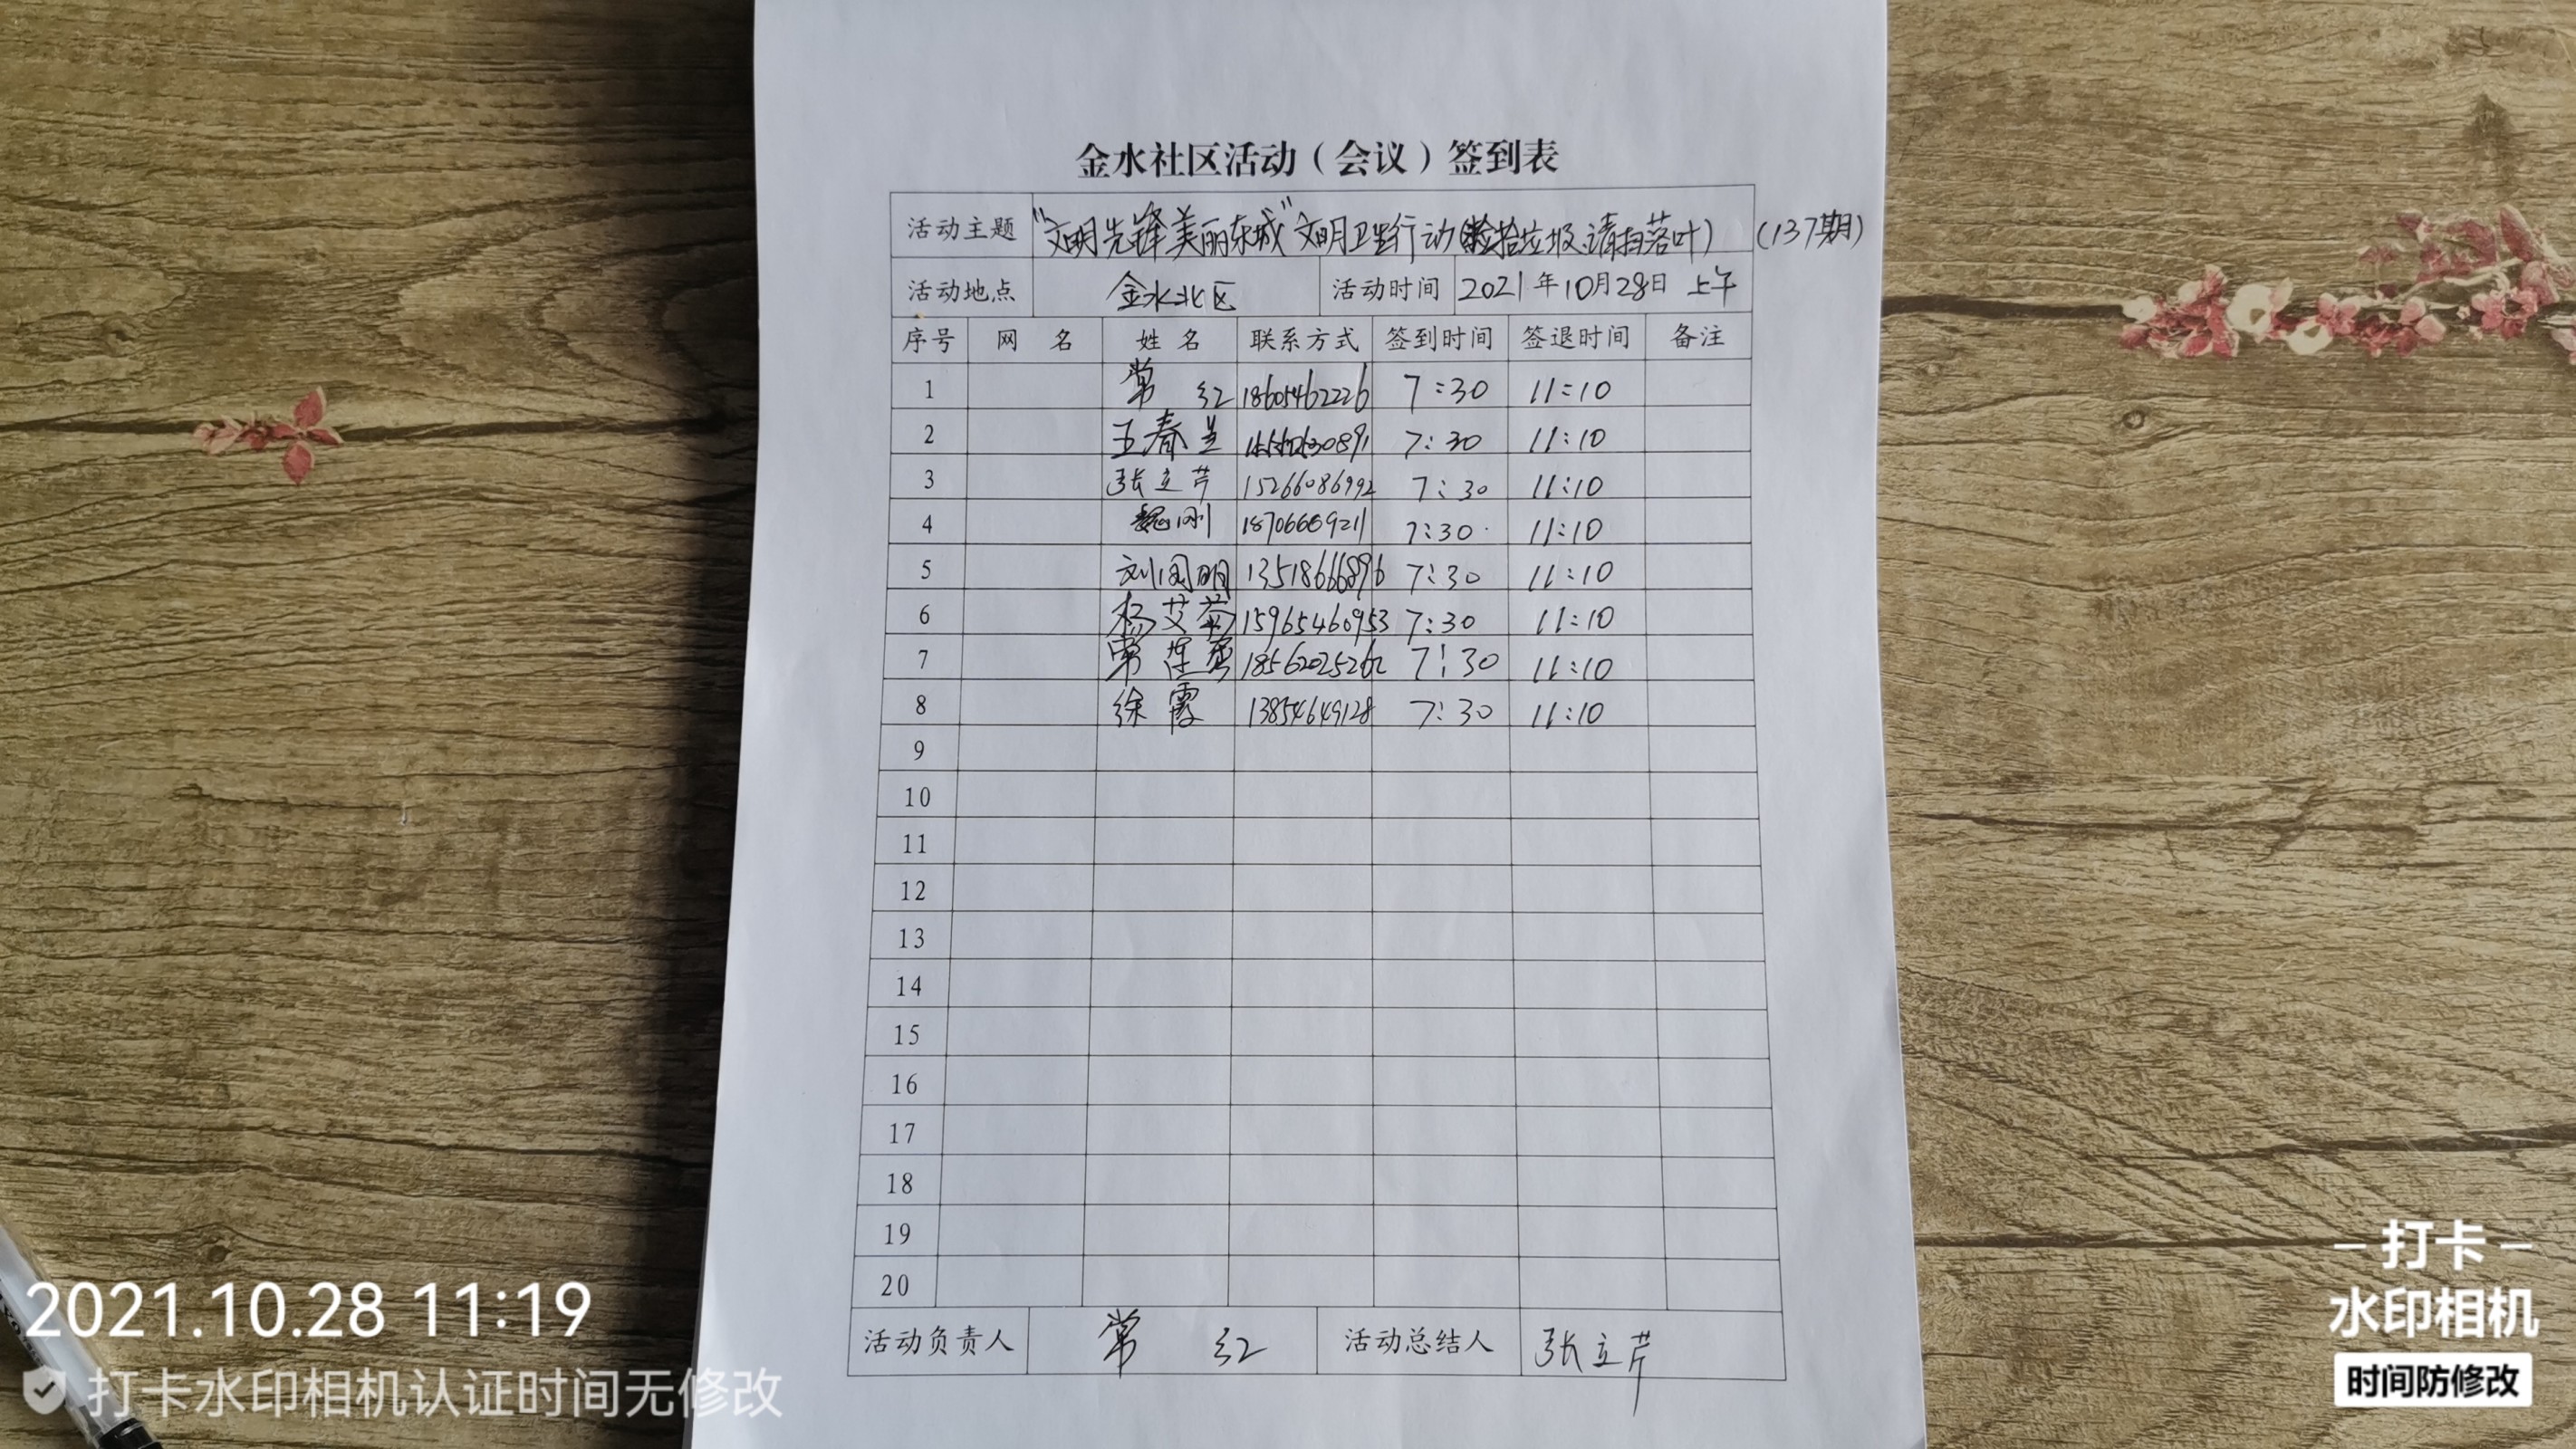 金水社区活动（会议）签到表
活动主题 “文明先锋美丽东城”文明卫生行动(捡拾垃圾、请扫落叶) (137期)
活动地点 金水北区 活动时间 2021年10月28日 上午
序号 网 名 姓 名 联系方式 签到时间 签退时间 备注
1 常 红 18605462226 7:30 11:10
2 王春兰 7:30 11:10
3 张立芹 15266086992 7:30 11:10
4 魏刚 18706669211 7:30 11:10
5 刘国明 13518666896 7:30 11:10
6 杨艾菊 15965460953 7:30 11:10
7 常 7:30 11:10
8 徐霞 13854649128 7:30 11:10
9
10
11
12
13
14
15
16
17
18
19
20
活动负责人 常 红 活动总结人 张立芹
2021.10.28 11:19
打卡水印相机认证时间无修改
打卡
水印相机
时间防修改